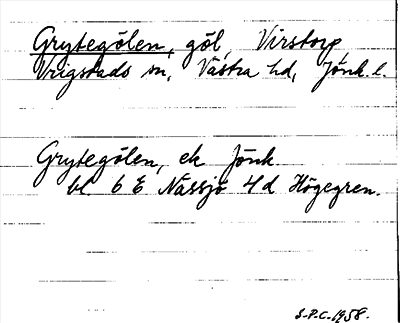 Grytegölen, göl, Virstorp,
Vrigstads sn, Västra hd, Jönk. l.
Grytegölen, ek Jönk
bl. 6 E Nässjö 4d Högegren.
S.P.C. 1958.